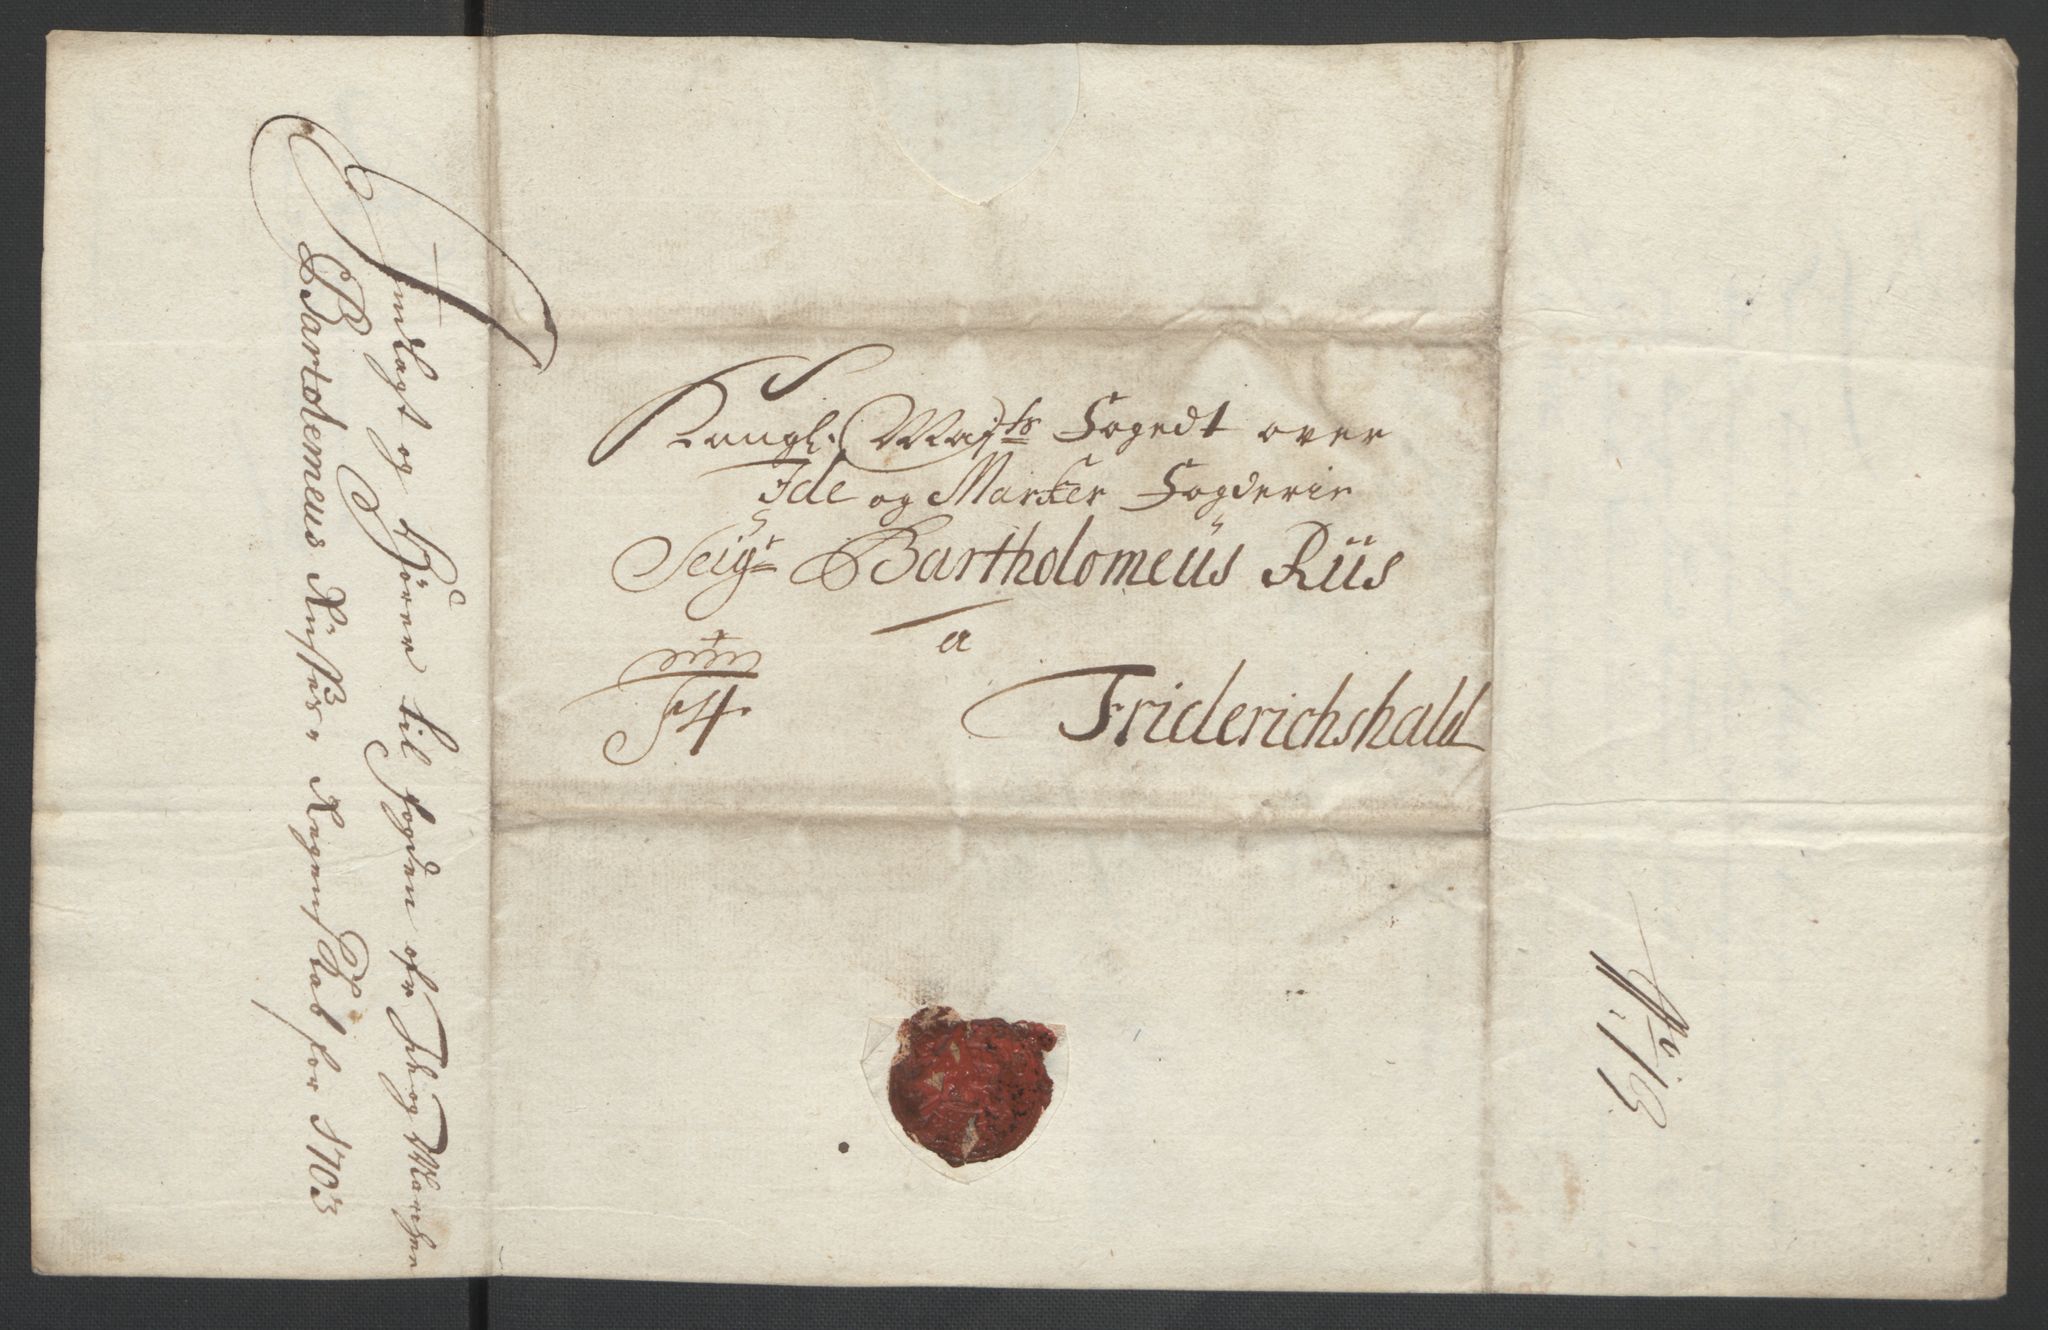 Kongl: Maj:ts Fogedt over
Ide og Marker Fogderie
Seigr Bartholomeüs Rüs
a
Friderichshald
Indlagt og hörer til fogden ofr Ide og Marchen
Bartolemeus Rusfes Regenskab for 1703
No: 13